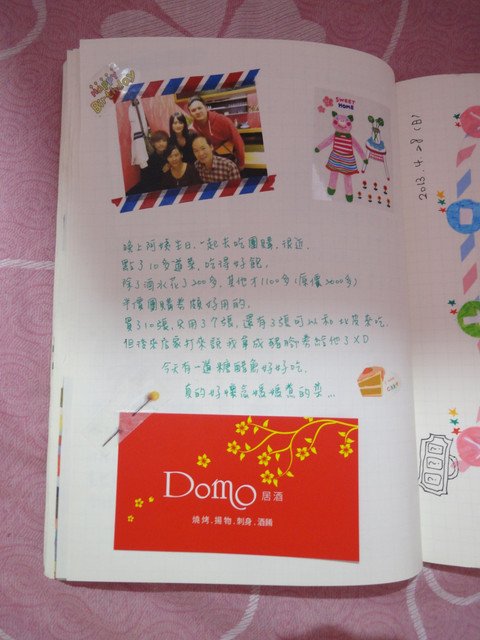 Happy Birthday
SWEET HOME
2013.4.28 (日)
晚上阿姨生日,一起去吃團購,很近.
點了10多道菜,吃得好飽.
除了滴水花了200多,其他才1100多(原價2000多)
半價團購券頗好用的.
買了10張,只用了7張,還有3張可以和
來吃.
但後來店家打來說我拿成
券給他了XD
今天有一道糖醋魚好好吃.
真的好懷念媽媽煮的菜...
Domo 居酒
燒烤.揚物.刺身.酒餚